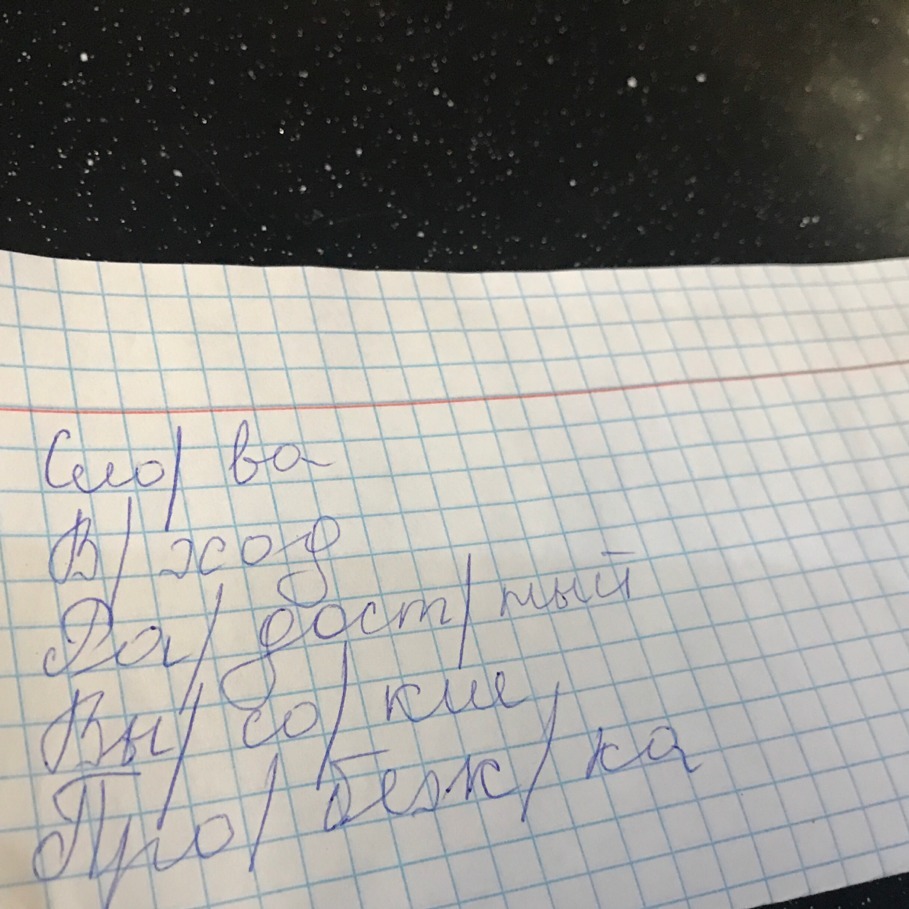 Сло/ ва
В/ ход
Ра/ дост/ ный
Вы/ со/ кие
Про/ беж/ ка